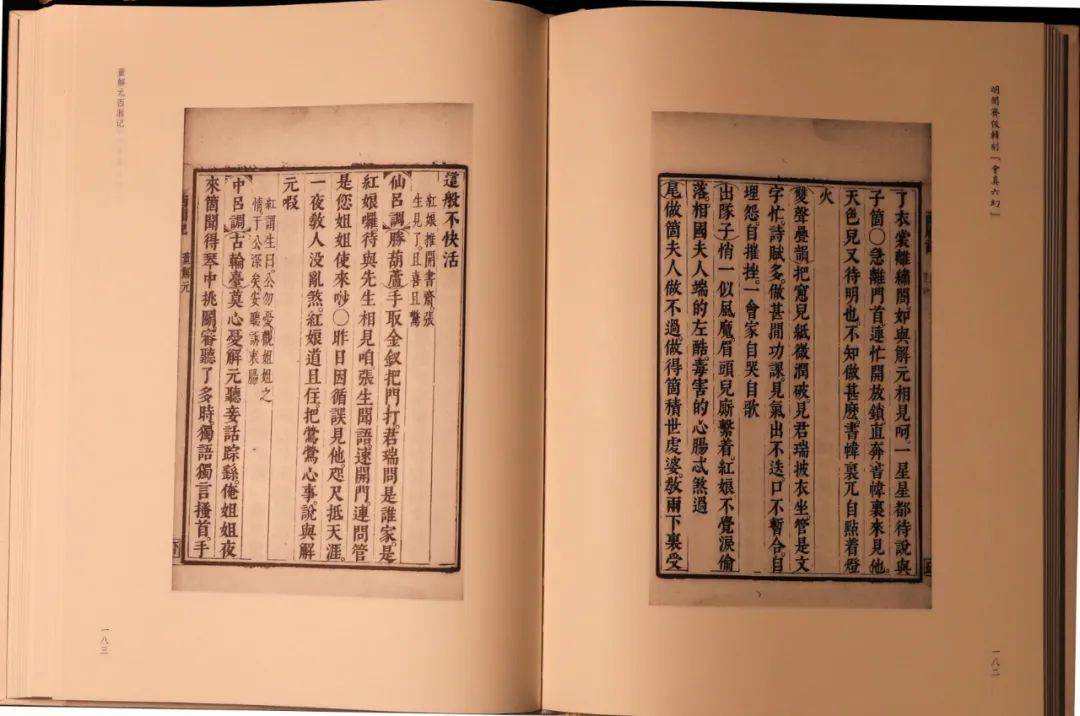 明閔齊伋輯刻「會真六幻」
了衣裳離繡閣如與解元相見呵。一星星都待說與
子箇○急離門首。連忙開放鎖。直奔書幃裏來見他。
天色兒又待明也。不知做甚麽。書幃裏兀自點着燈
火
雙聲疊韻把窻兒紙微潤破。見君瑞披衣坐。管是文
字忙。詩賦多。做甚閒功課。見氣出不迭口不暫合。自
埋怨。自摧挫。一會家自哭自歌
出隊子悄一似風魔。眉頭兒廝繫着。紅娘不覺淚偷
落。相國夫人端的左。酷毒害的心腸忒煞過
尾做箇夫人做不過。做得箇積世虔婆。教兩下裏受
一八二
董解元西厢记
這般不快活
紅娘推開書齋。張
生見了。且喜且驚
仙呂調勝葫蘆手取金釵把門打。君瑞問是誰家。是
紅娘囉待與先生相見咱。張生聞語速開門連問管
是您姐姐使來吵○昨日因循誤見他。咫尺抵天涯。
一夜教人没亂煞。紅娘道且住。把鶯鶯心事。說與解
元呀
紅謂生曰。公勿憂。觀姐姐之
情。于公深矣。妾聽訴衷腸
中呂調古輪臺莫心憂。解元聽妾話踪繇。俺姐姐夜
來箇聞得琴中挑鬬。審聽了多時。獨語獨言搔首。手
董解元
一八三